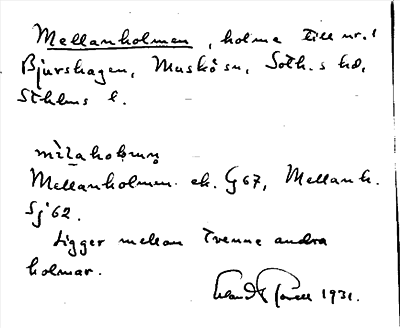 Mellanholmen, holme till nr. 1
Bjurshagen, Muskö sn, Soth.s hd,
Sthlms l.
Mellanholmen. ek. G 67, Mellanh.
Sj 62.
Ligger mellan tvenne andra
holmar.
1931.